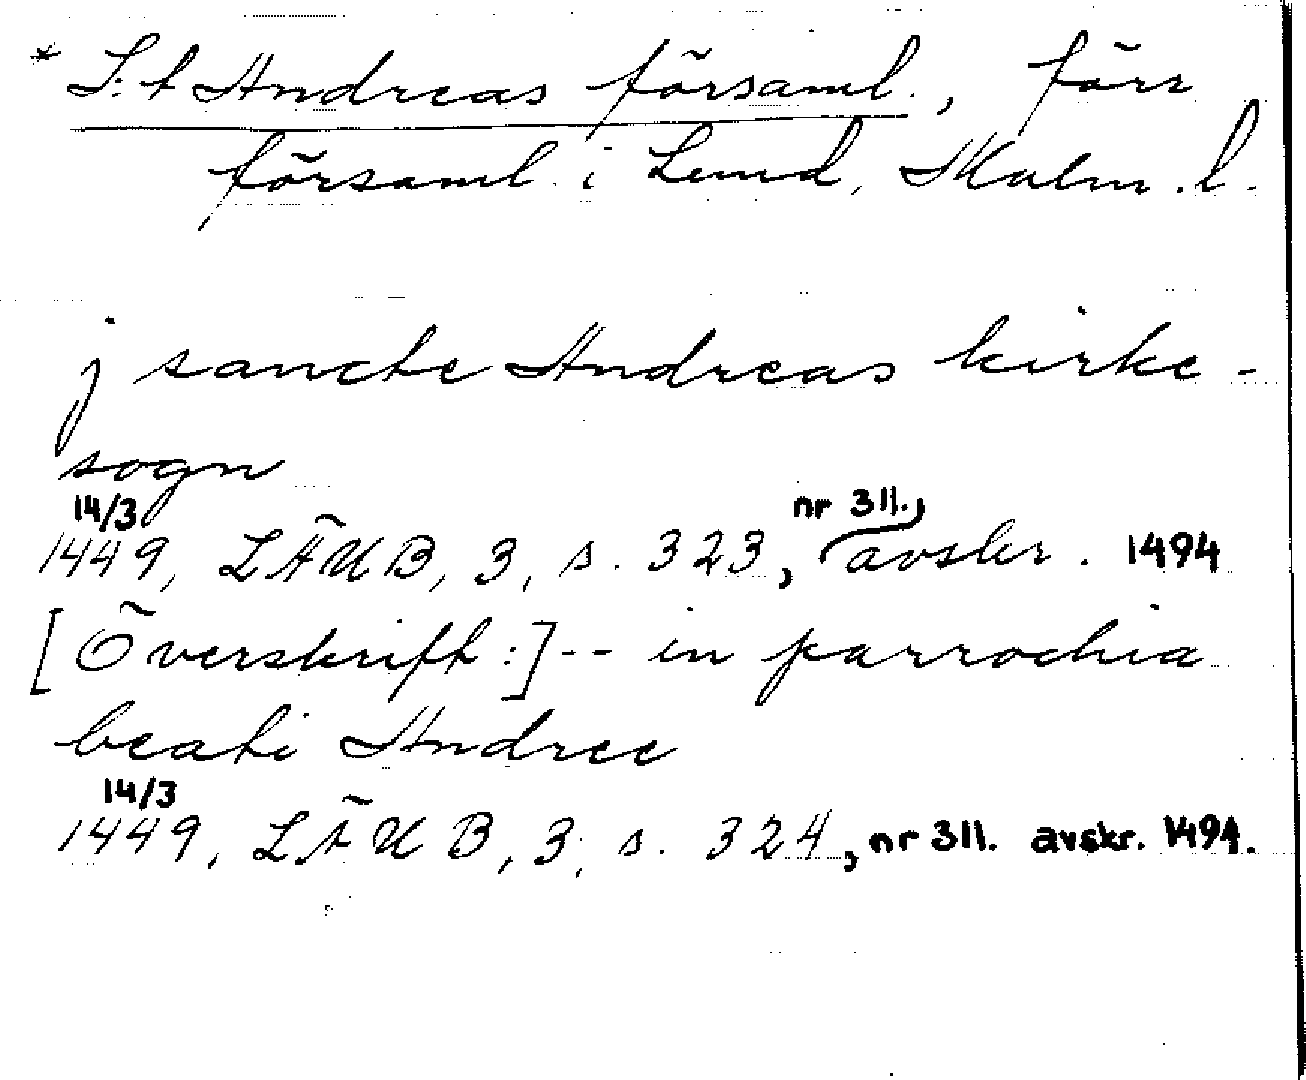 * S:t Andreas församl., förr
församl. i Lund, Malm.l.
j sancte Andreas kirke-
sogn
14/3 nr 311.,
1449, LÄUB, 3, s. 323, avskr. 1494
[Överskrift:]-- in parrochia
beati Andree
14/3
1449, LÄUB, 3, s. 324, nr 311. avskr. 1494.